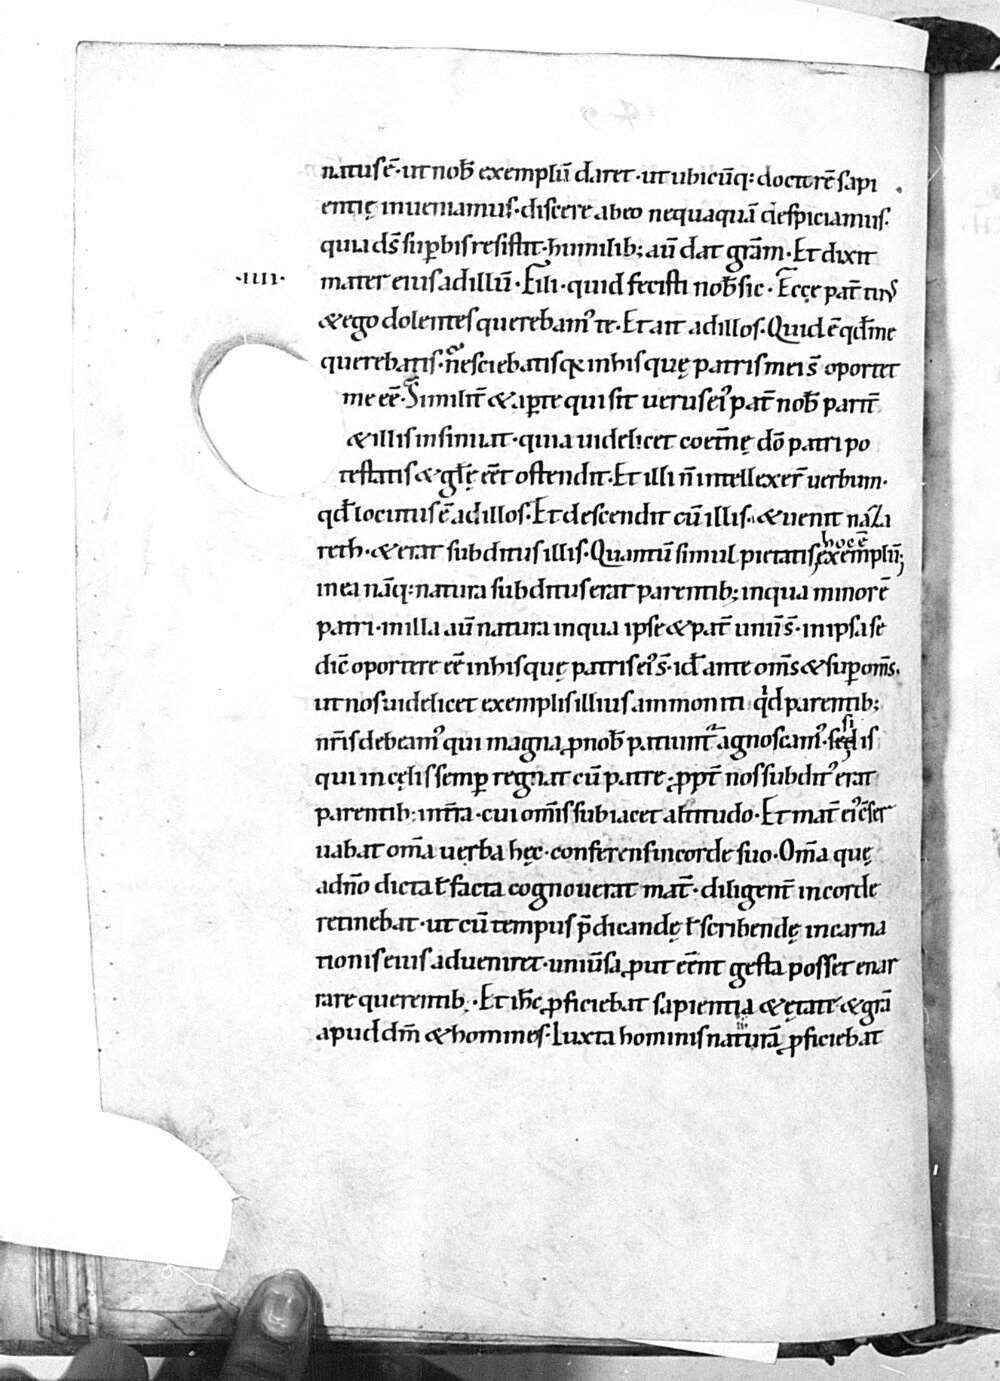 natus ē· ut nob̄ exempłū daret· ut ubicūq: doctorē sapi
entię inueniamus· discere ab eo nequaquā despiciamus·
quia dś supbis resistit· humilib; aū dat grām· Et dixit
·IIII·
mater eius ad illū· Fili· quid fecisti nob̄ sic· Ecce pat̄ tuus
& ego dolentes querebam᾽ te· Et ait ad illos· Quid ē qđ me
querebatis· nesciebatis q̄a in his quę patris mei s̄ oportet
me eē· Similit̄ & apte qui sit uerus ei᾽ pat̄ nob̄ parit̄
& illis insinuat· quia uidelicet coetn̄ę dō patri po
testatis & głę eēt ostendit· Et illi n̄ intellexer̄ uerbum·
qđ locutus ē ad illos· Et descendit cū illis· & uenit naza
reth· & erat subditus illis· Quantū simul pietatis hoc ē exempłū;
in ea nāq: natura subditus erat parentib; in qua minor ē
patri· in illa aū natura in qua ipse & pat̄ unū s̄· in ipsa se
diċ oportere eē in his quę patris ei᾽ s̄· id ante om̄s & sup om̄s·
ut nos uidelicet exemplis illius ammoniti qd parentib;
nr̄is debeam᾽ qui magna p nob̄ patiunt᾽ agnoscam᾽· si is
qui in cęlis semp regnat cū patre· ppt̄ nos subdit᾽ erat
parentib: in t̄ra· cui om̄is subiacet altitudo· Et mat̄ ei᾽ c̄ser
uabat om̄a uerba hęc· conferens in corde suo· Om̄a quę
a dn̄o dicta ł facta cognouerat mat̄· diligent̄ in corde
retinebat· ut cū tempus p̄dicandę ł scribendę incarna
tionis eius adueniret· uniūsa put eēnt gesta posset enar
rare querentib;· Et ih̄c pficiebat sapientia & ętate & grā
apud dm̄ & homines· Iuxta hominis naturā pficiebat